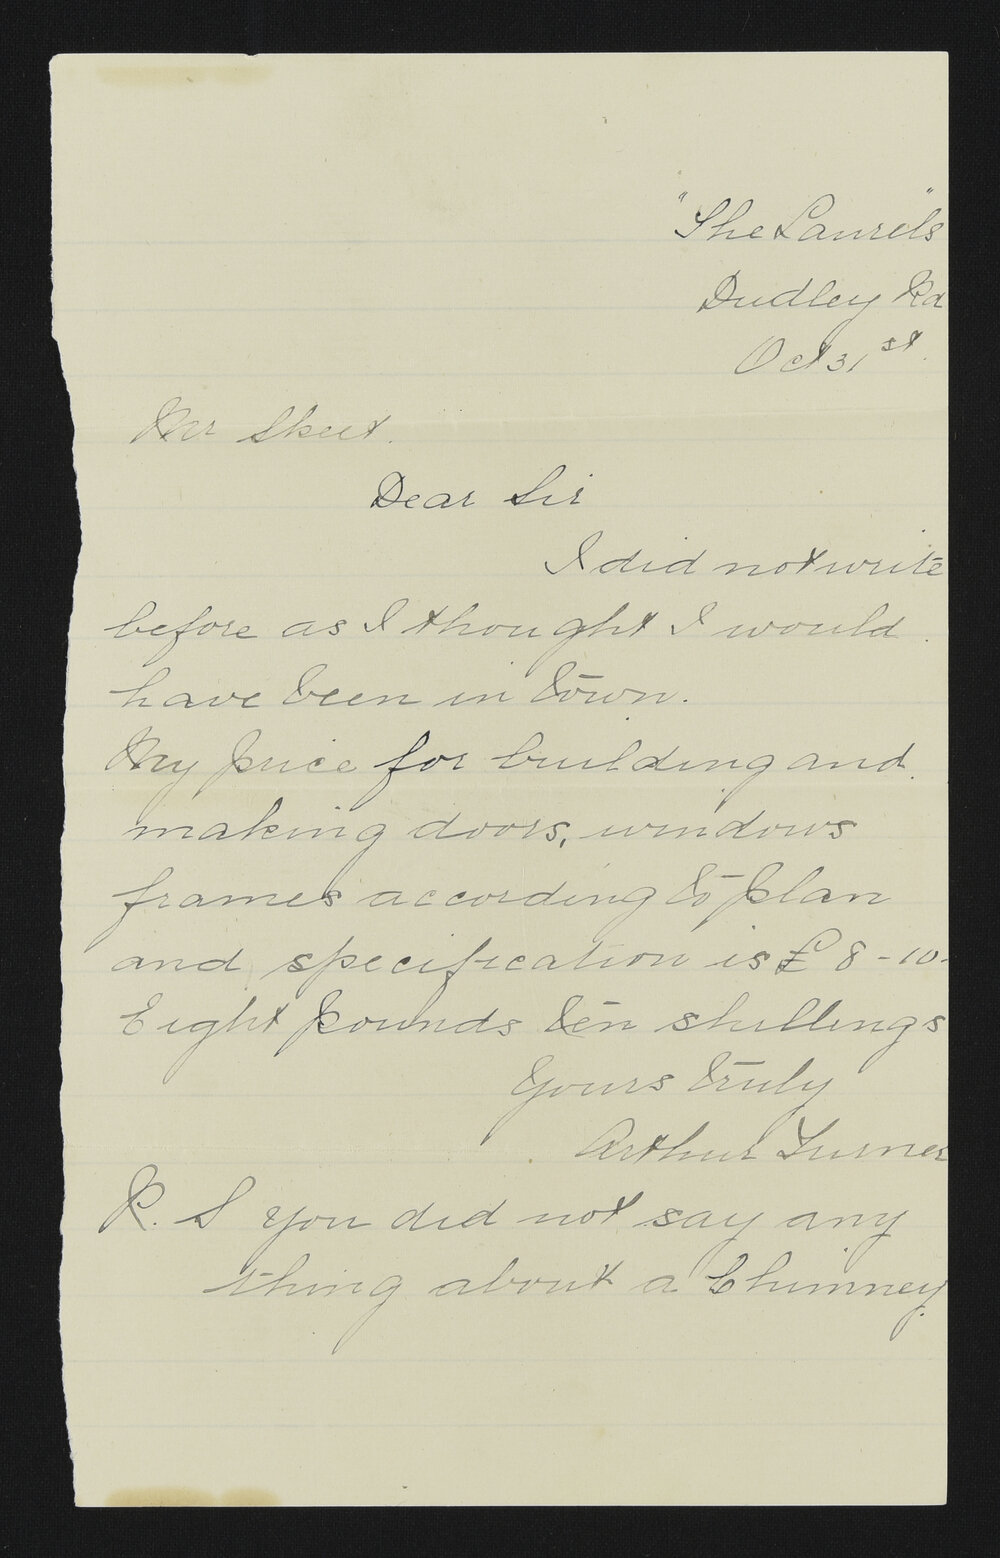 "The Laurels"
Dudley Rd
Oct 31st.
Mr Skeet.
Dear Sir
I did not write
before as I thought I would
have been in town.
My price for building and
making doors, windows
frames according to plan
and specification is £8-10-
Eight pounds ten shillings
Yours truly
Arthur Turner
P. S you did not say any
thing about a Chimney.